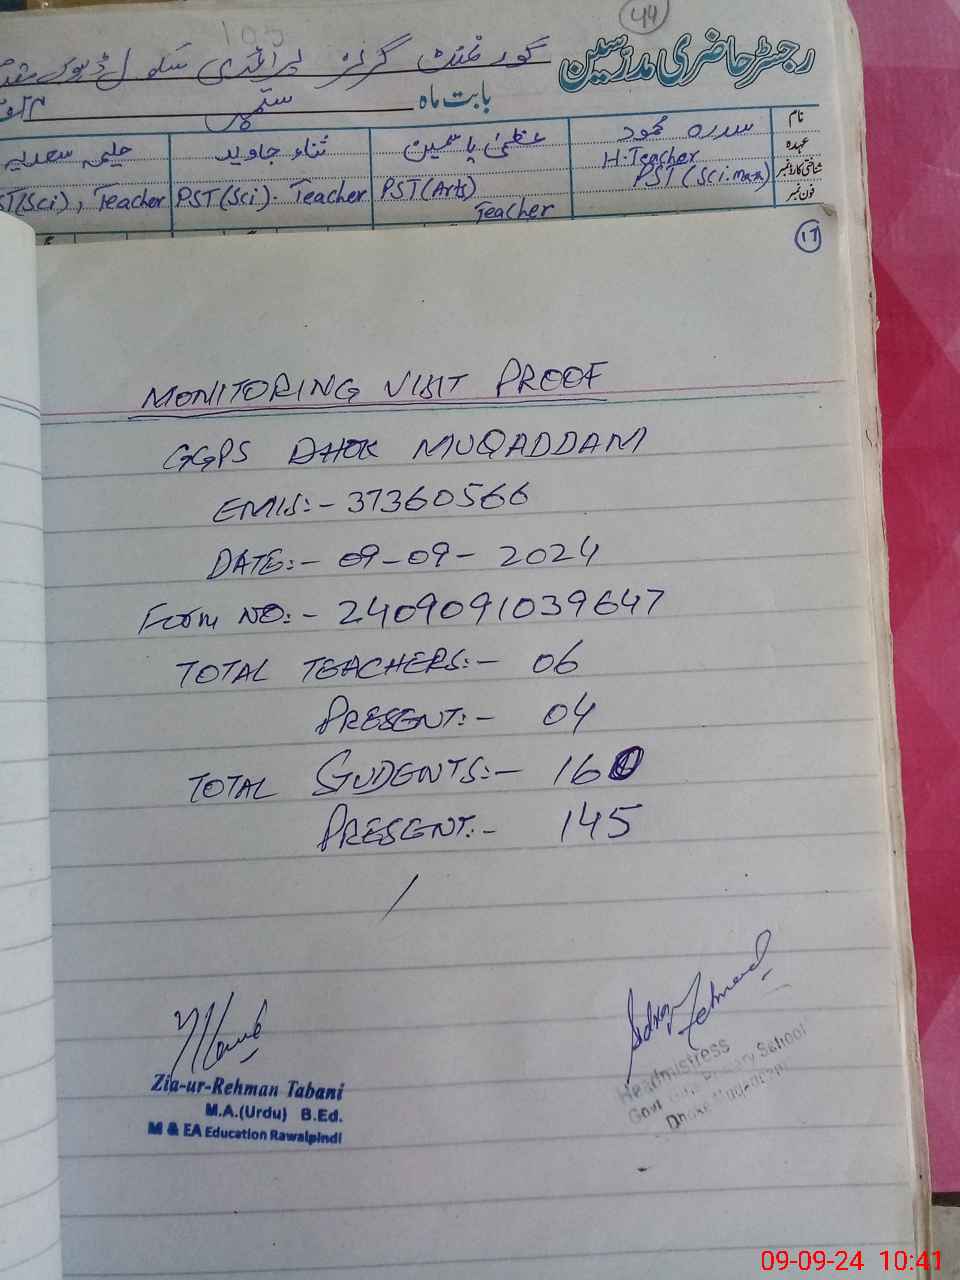 44
105
رجسٹر حاضری مدرسین
گورنمنٹ گرلز پرائمری سکول ڈھوک
بابت ماہ ستمبر
نام
سدرہ محمود
عظمیٰ یاسمین
ثناء جاوید
حلیمہ سعدیہ
عہدہ
H.Teacher
شناختی کارڈ نمبر
PST(Sci.math)
PST(Arts)
Teacher
PST(Sci). Teacher
ST(Sci), Teacher
فون نمبر
17
MONITORING VISIT PROOF
GGPS DHOK MUQADDAM
EMIS:- 37360566
DATE:- 09-09-2024
Form NO:- 2409091039647
TOTAL TEACHERS:- 06
PRESENT:- 04
TOTAL STUDENTS:- 160
PRESENT:- 145
Zia-ur-Rehman Tabani
M.A.(Urdu) B.Ed.
M & EA Education Rawalpindi
Sidra Mehmood
Headmistress
Govt. Girls Primary School
Dhoke Muqaddam
09-09-24 10:41